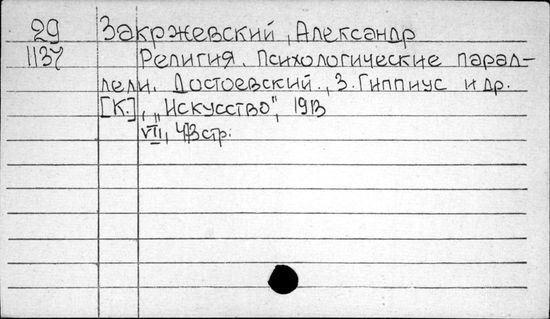 29 Закржевский, Александр
1137 Религия. Психологические парал-
лели. Достоевский., З. Гиппиус и др.
[К.], „Искусство", 1913
VII, 473 стр.